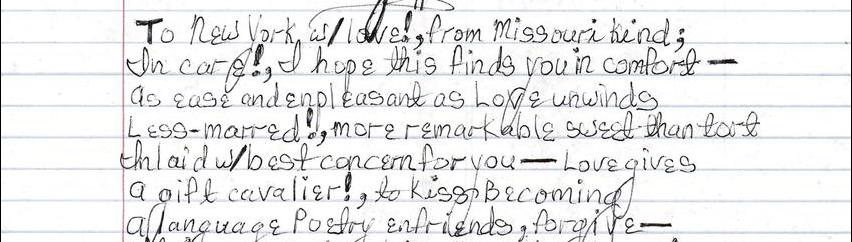 To New York, w/ love!, from Missouri kind;
In care!, I hope this finds you in comfort —
as ease and enpleasant as Love unwinds
Less-marred!, more remarkable sweet than tart
Inlaid w/ best concern for you — Love gives
a gift cavalier!, to kiss, Becoming
a language Poetry enfriends, forgive —